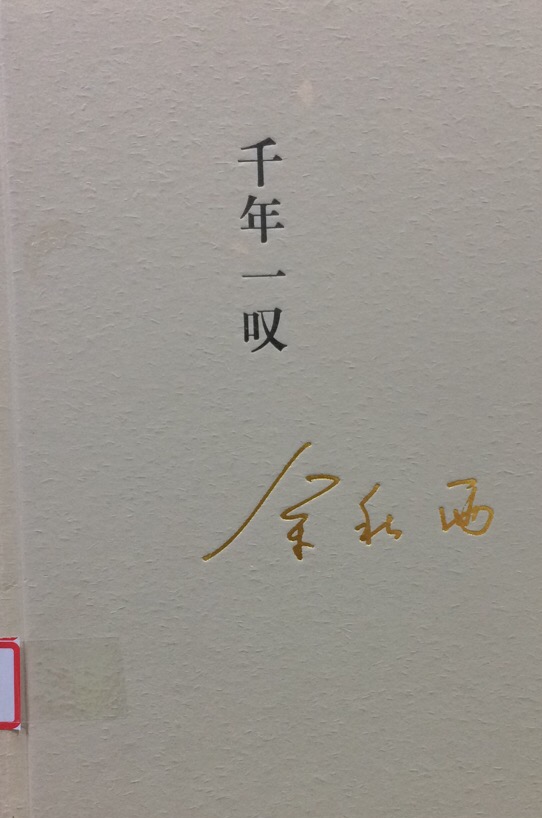 千年一叹
余秋雨